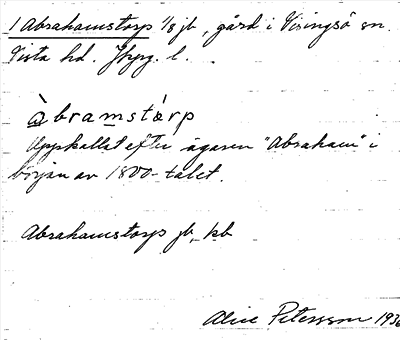 1 Abrahamstorp 1/8 jb, gård i Visingsö sn.
Vista hd. Jkpg. l.
àbramstà̀rp
Uppkallat efter ägaren "Abraham" i
början av 1800-talet.
Abrahamstorp jb, kb
Alice Petersson 1936